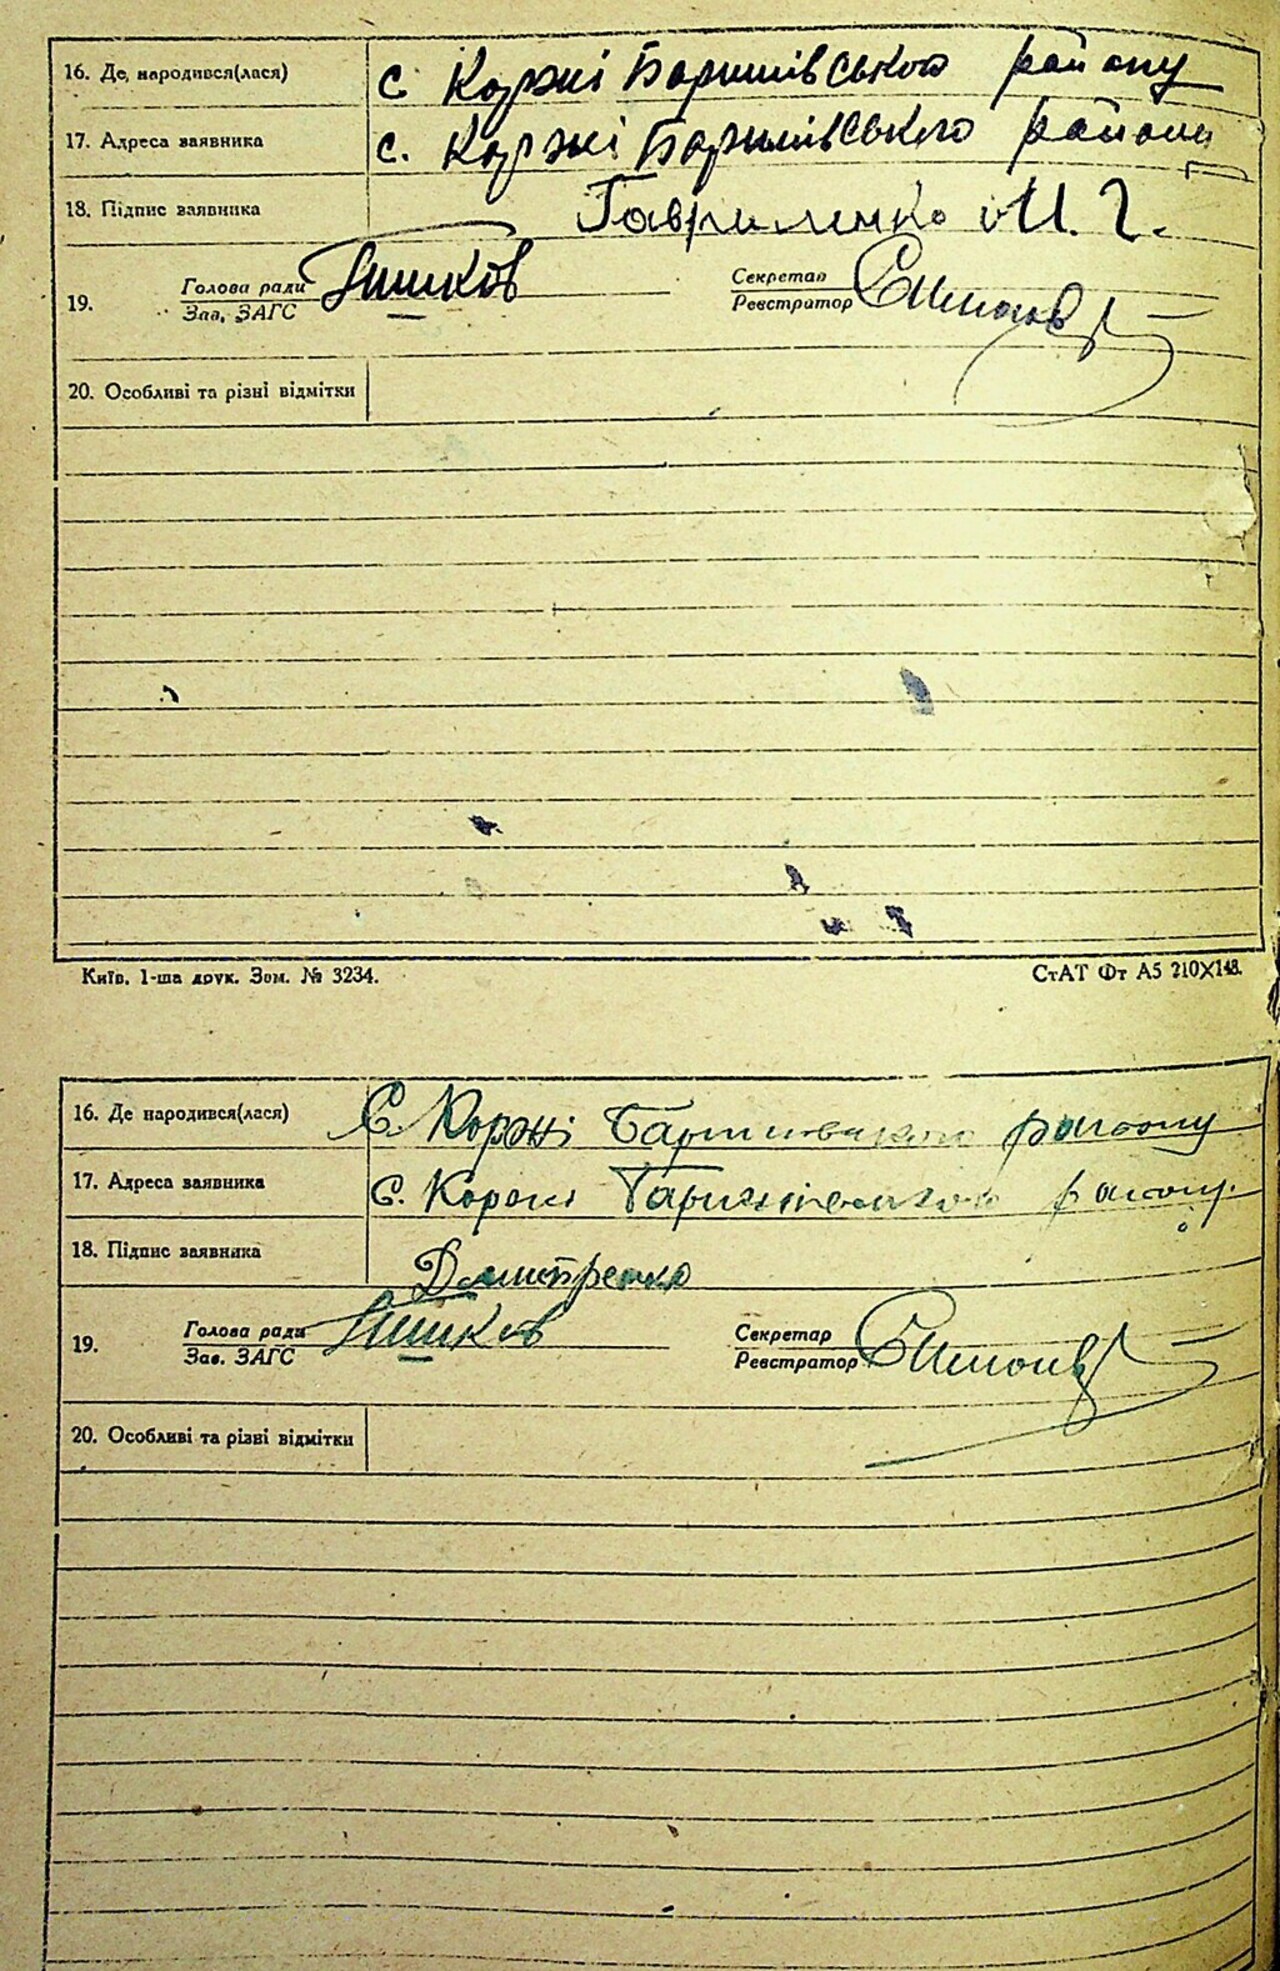 16. Де народився(лася) с. Коржі Баришівського району
17. Адреса заявника с. Коржі Баришівського району
18. Підпис заявника Гавриленко М. Г.
Голова ради Секретар
19. Зав. ЗАГС Реєстратор
20. Особливі та різні відмітки
Київ. 1-ша друк. Зам. № 3234. СтАТ Фт А5 210X148.
16. Де народився(лася) С. Коржі Баришівського району
17. Адреса заявника с. Коржі Баришівського району
18. Підпис заявника Дмитренко
Голова ради Секретар
19. Зав. ЗАГС Реєстратор
20. Особливі та різні відмітки